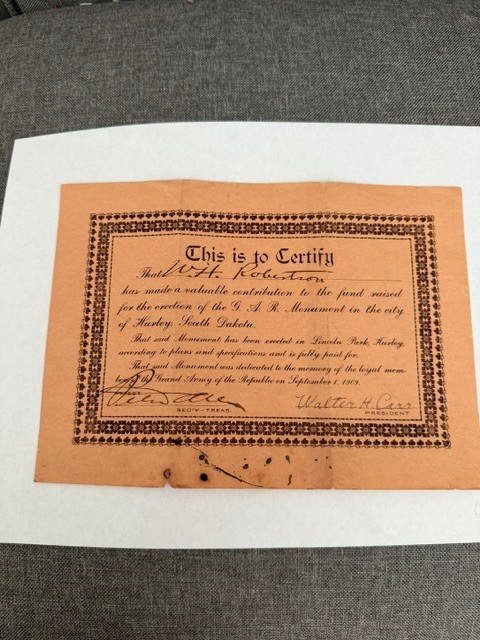 This is to Certify
That W.H. Robertson
has made a valuable contribution to the fund raised
for the erection of the G. A. R. Monument in the city
of Hurley, South Dakota.
That said Monument has been erected in Lincoln Park, Hurley,
according to plans and specifications and is fully paid for.
That said Monument was dedicated to the memory of the loyal mem-
bers of the Grand Army of the Republic on September 1, 1909.
Walter H. Carr
SEC'Y-TREAS.
PRESIDENT